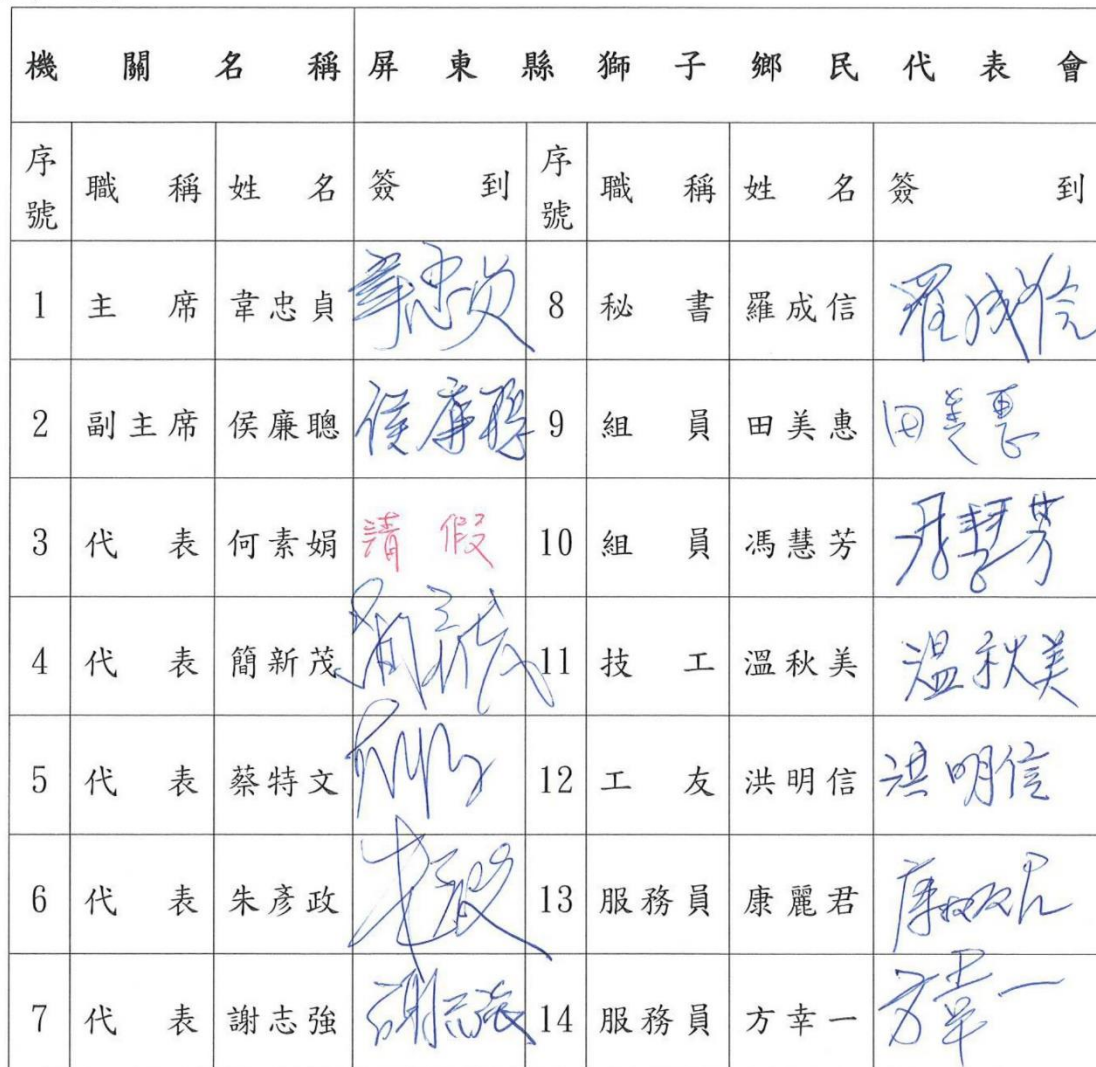 機關名稱 屏東縣獅子鄉民代表會
序號 職稱 姓名 簽到 序號 職稱 姓名 簽到
1 主席 韋忠貞 韋忠貞 8 秘書 羅成信 羅成信
2 副主席 侯廉聰 侯廉聰 9 組員 田美惠 田美惠
3 代表 何素娟 請假 10 組員 馮慧芳 馮慧芳
4 代表 簡新茂 簡新茂 11 技工 溫秋美 溫秋美
5 代表 蔡特文 12 工友 洪明信 洪明信
6 代表 朱彥政 朱彥政 13 服務員 康麗君 康麗君
7 代表 謝志強 謝志強 14 服務員 方幸一 方幸一